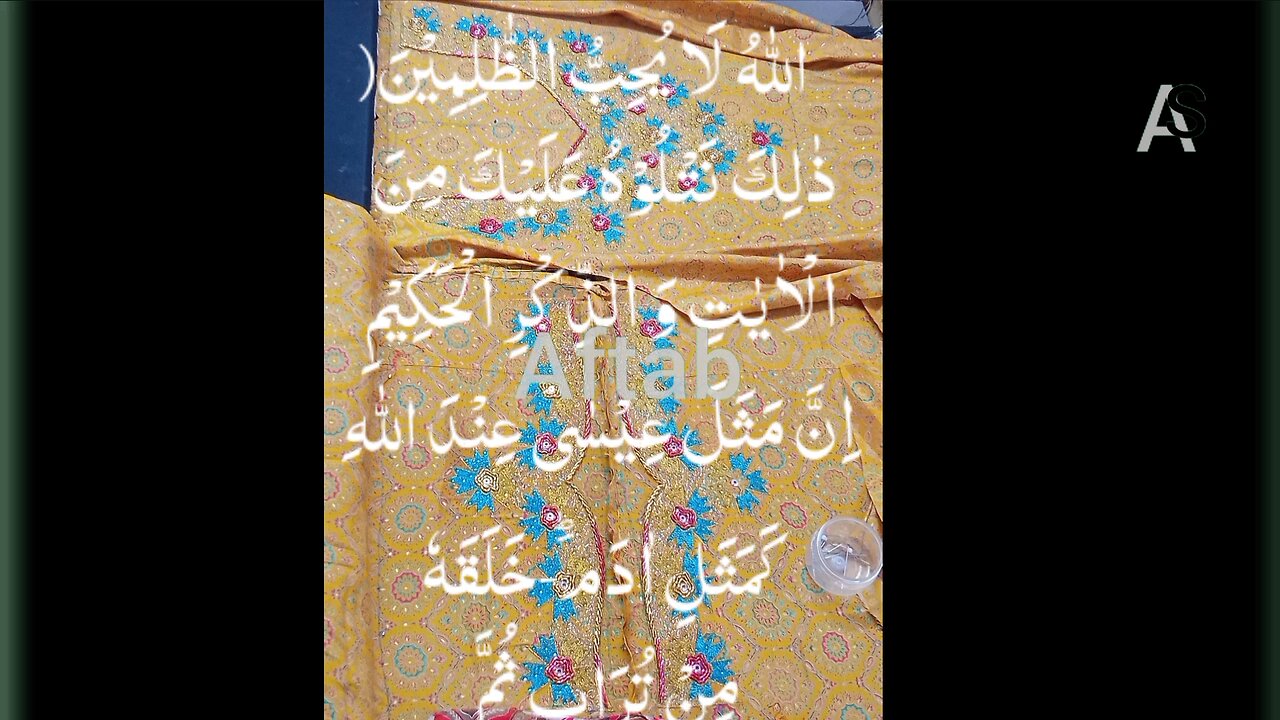 اللّٰهُ لَا يُحِبُّ الظّٰلِمِيْنَ(
ذٰلِكَ نَتْلُوْهُ عَلَيْكَ مِنَ
الْاٰيٰتِ وَ الذِّكْرِ الْحَكِيْمِ
Aftab
اِنَّ مَثَلَ عِيْسٰى عِنْدَ اللّٰهِ
كَمَثَلِ اٰدَمَؕ-خَلَقَهٗ
مِنْ تُرَابٍ ثُمَّ
AS